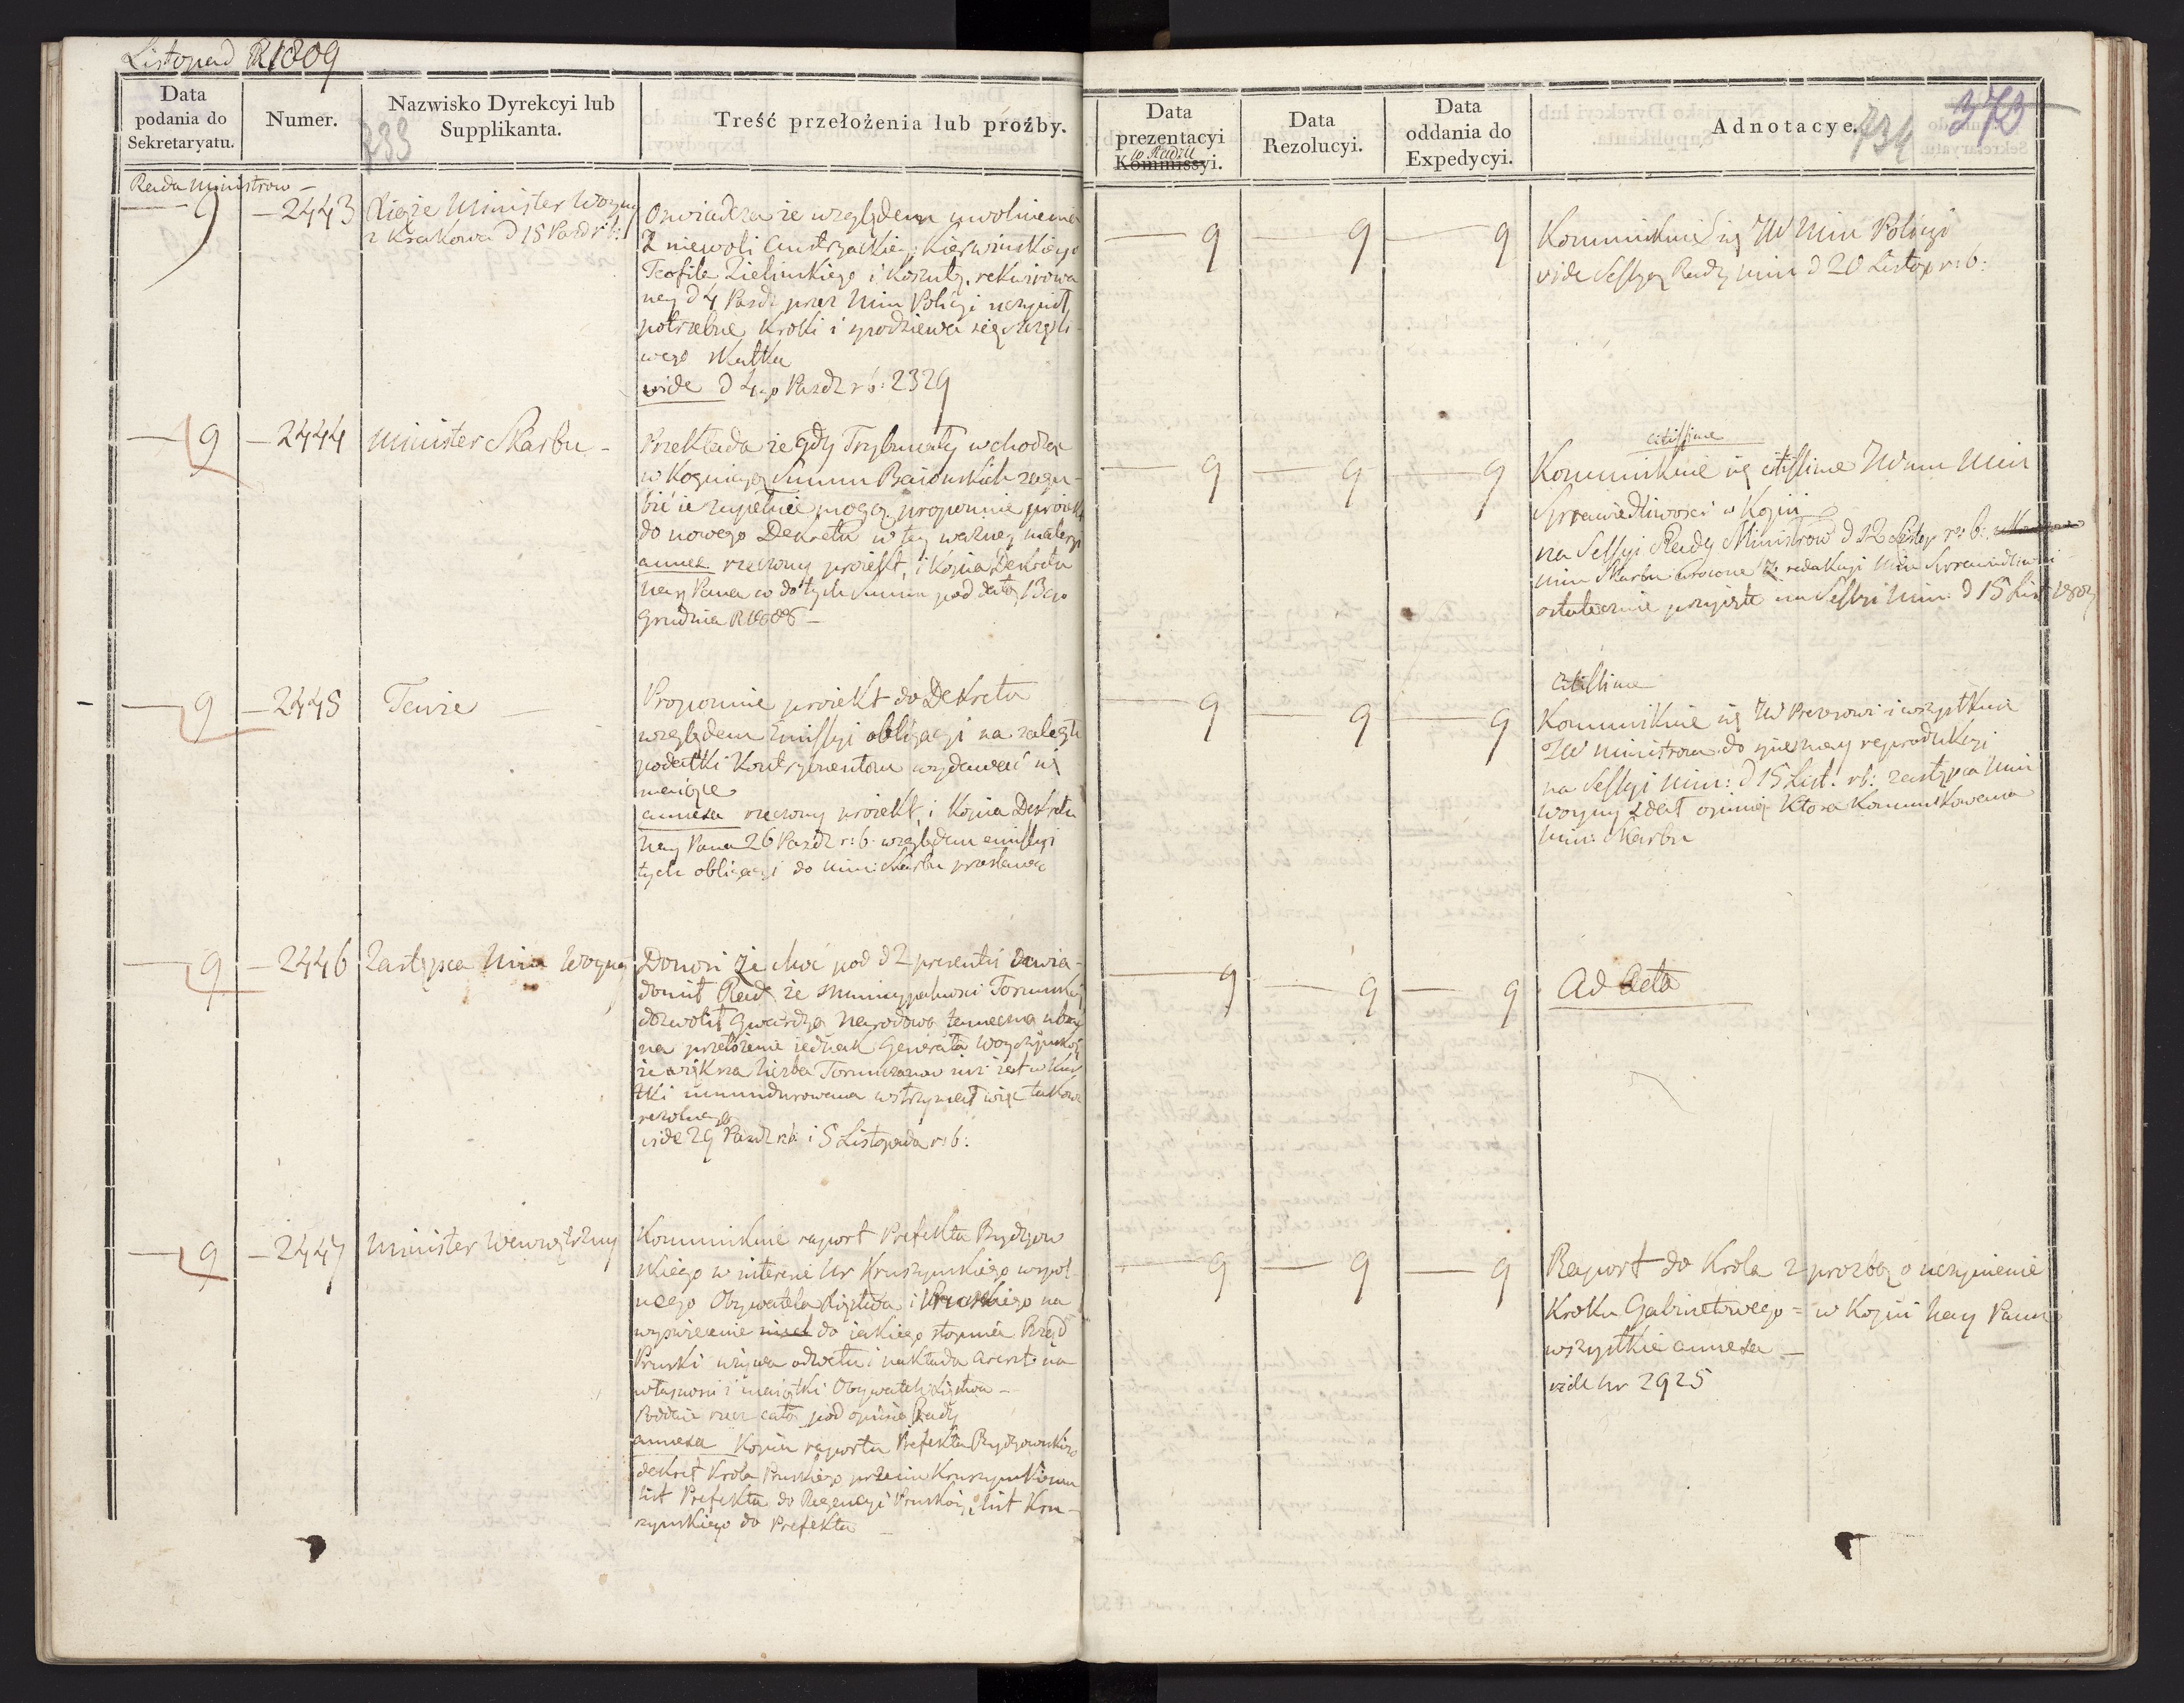 Listopad R 1809
Data podania do Sekretaryatu.
Numer.
Nazwisko Dyrekcyi lub Supplikanta.
733
Treść przełożenia lub proźby.
Data prezentacyi Kommissyi.
w Radzie
Data Rezolucyi.
Data oddania do Expedycyi.
Adnotacye.
734
370
Rada Ministrow –
9 – 2443
Xiąże Minister Woyny
z Krakowa d 15 Pazd r: b:
Oswiadcza ze względem uwolnienia
z niewoli Austryackiey
Teofila Zielinskiego i
ney d 4 Pazdz przez Min Policyi uczynił
potrzebne kroki i spodziewa się szczęśli-
wego skutku
vide d 4go Pazdz r b: 2329
9 9 9
Kommunikuie się JW Min Policyi
vide Sessyą Rady Min d 20 Listop r: b:
9 – 2444
Minister Skarbu –
Przekłada ze gdy Trybunały wchodząc
w Kognicyą Summ Baiońskich zagu-
bić ie zupełnie mogą proponuie proiekt
do nowego Dekretu w tey ważney materyi
annex. rzeczony proiekt, i Kopia Dekretu
Nay Pana co do tych Summ pod datą 13go
Grudnia R 1808 –
9 9 9
citissime
Kommunikuie się citissime JWmu Min
Sprawiedliwosci w Kopii
na Sessyi Rady Ministrow d 12 Listop r: b:
Min Skarbu redakcyi Min Sprawiedliwości
ostatecznie przyięte na Sessyi Min: d 15 List 1809
9 – 2445
Tenże –
Proponuie proiekt do Dekretu
względem Emissyi obligacyi na zaległe
podatki Kontrybuentom wydawać się
maiące
annexa rzeczony proiekt, i Kopia Dekretu
Nay Pana 26 Pazdz r: b. względem emissyi
tych obligacyi do Min: Skarbu przesłanego
9 9 9
Citissime
Kommunikuie się JW Prezesowi i wszystkim
JW Ministrom do reprodukcyi
na Sessyi Min: d 15 List. r b: zastępca Min
Woyny zdał opinią ktora kommunikowana
Min: Skarbu
9 – 2446
Zastępca Min Woyny
Donosi że choć pod d 2 presentis zawia-
domił Radę ze Municypalnosci Toruńskiey
dozwolił Gwardyą Narodową
na przełożenie iednak Generała Woyczyńskiego
ze większa liczba Torunianow iuż iest w kur
tki umundurowana wstrzymał więc takową
rezolucyą
vide 29 Pazdz r: b: i 5 Listopada r: b:
9 9 9
Ad Acta
9 – 2447
Minister Wewnętrzny
Kommunikuie raport Prefekta Bydgow
skiego w interesie Ur Kruszynskiego wspol
nego Obywatela Xięstwa i Pruskiego na
wyswiecenie do iakiego stopnia Rząd
Pruski używa odwetu i nakłada areszt na
własnosci i maiątki Obywateli Xięstwa –
Poddaie rzecz całą pod opinią Rady
annexa Kopia raportu Prefekta Bydgowskiego
dekret Krola Pruskiego przeciw Kruszynskiemu
list Prefekta do Regencyi Pruskiey, list Kru-
szynskiego do Prefekta –
9 9 9
Raport do Krola z prozbą o uczynienie
Kroku Gabinetowego = w Kopii Nay Panu
wszystkie annexa –
vide Nr 2925